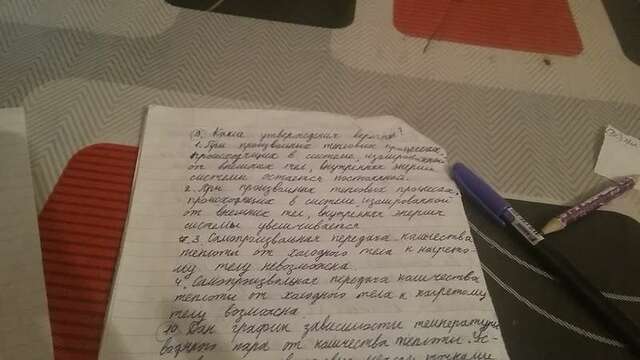 Какие утверждения верны?
1. При произвольных тепловых процессах,
происходящих в системе, изолированной
от внешних тел, внутренняя энергия
системы остается постоянной.
2. При произвольных тепловых процессах,
происходящих в системе изолированной
от внешних тел, внутренняя энергия
системы увеличивается
3. Самопроизвольная передача количества
теплоты от холодного тела к нагрето-
му телу невозможна.
4. Самопроизвольная передача количества
теплоты от холодного тела к нагретому
телу возможна.
10. Дан график зависимости температуры
водяного пара от количества теплоты. Ис-